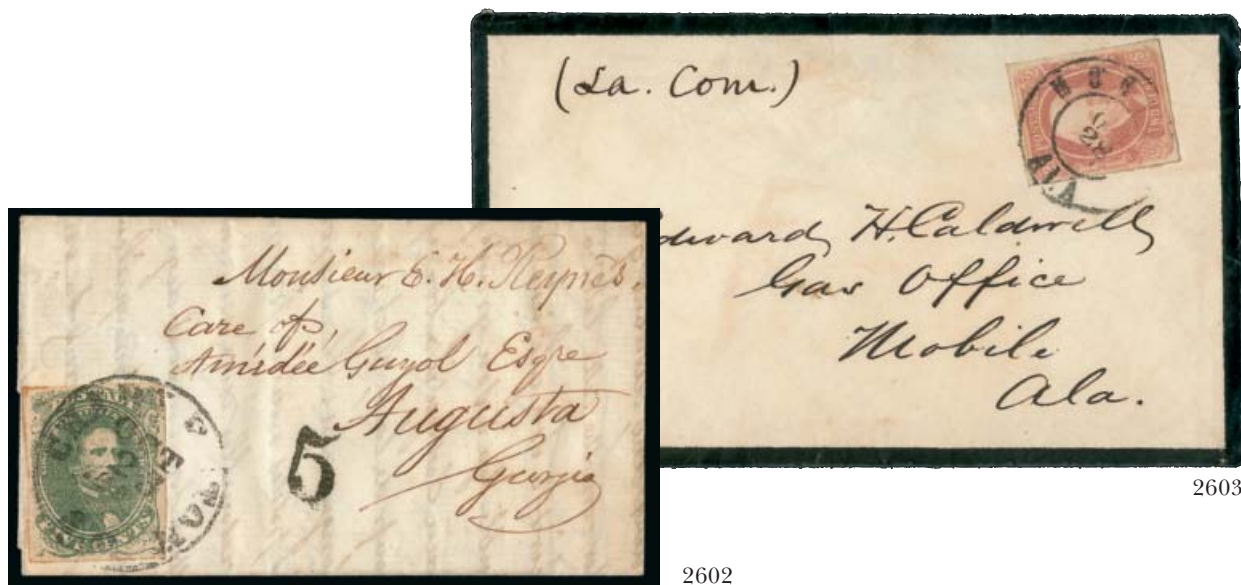 (La. Com.)
Edward H. Caldwell
Gas Office
Mobile
Ala.
2603
Monsieur E. H. Reynès.
Care of,
Amédée Guyol Esqre
Augusta
Georgia
5
2602